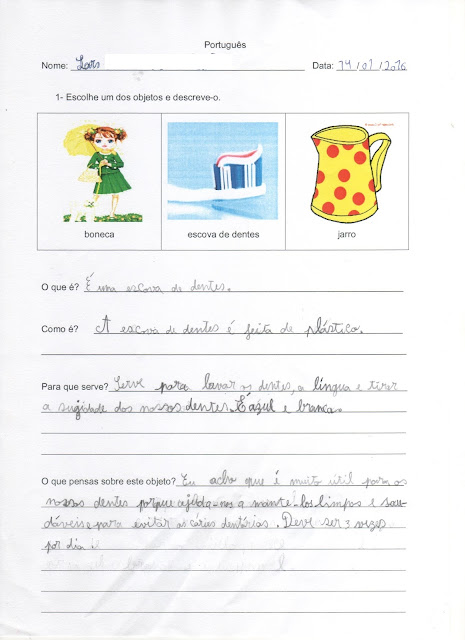 Português
Nome: Lars Data: 14/01/2016
1- Escolhe um dos objetos e descreve-o.
boneca escova de dentes jarro
O que é? É uma escova de dentes.
Como é? A escova de dentes é feita de plástico.
Para que serve? Serve para lavar os dentes, a língua e tirar
a sujidade dos nossos dentes. É azul e branca.
O que pensas sobre este objeto? Eu acho que é muito útil para os
nossos dentes porque ajuda-nos a mantê-los limpos e sau-
dáveis e para evitar as cáries dentárias. Deve ser 3 vezes
por dia